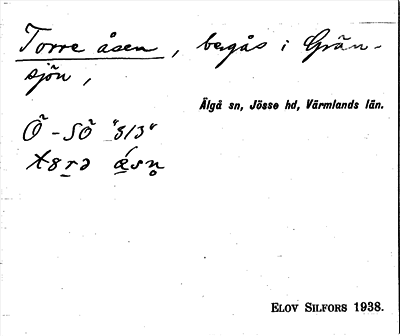 Torre åsen, bergås i Grän-
sjön,
Älgå sn, Jösse hd, Värmlands län.
Ö-SÖ "513"
ELOV SILFORS 1938.